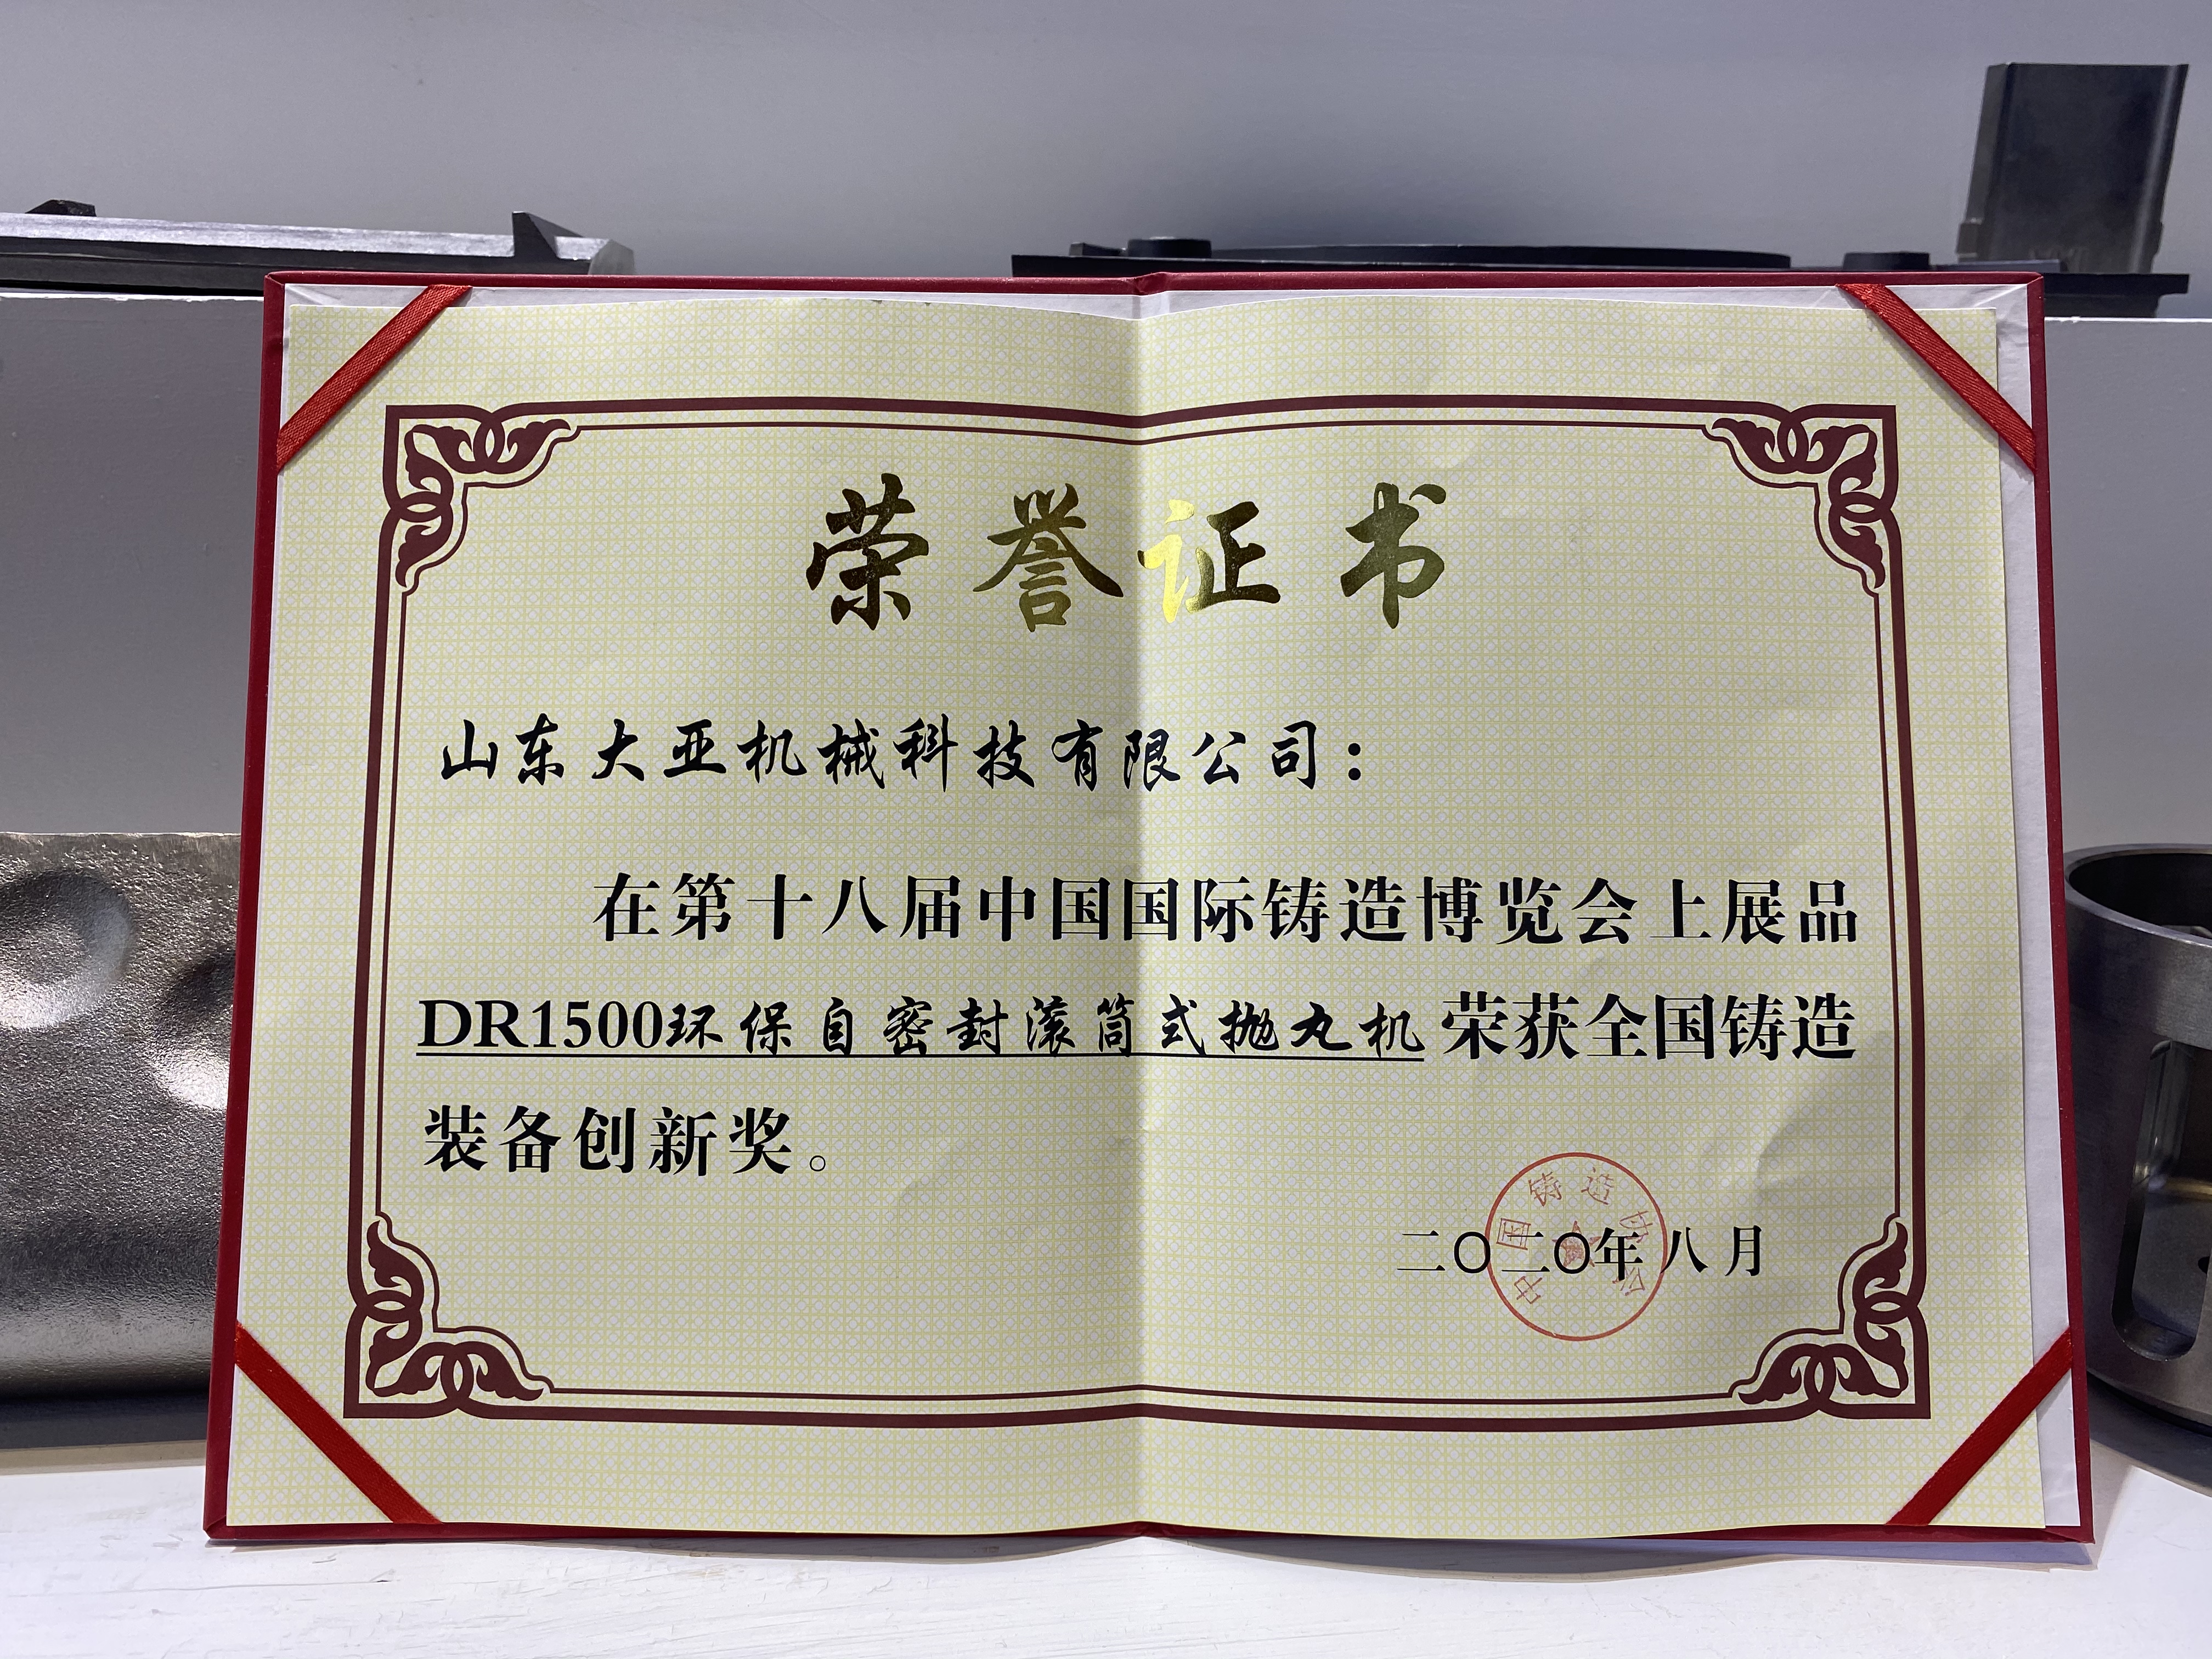 荣誉证书
山东大亚机械科技有限公司：
在第十八届中国国际铸造博览会上展品
DR1500环保自密封滚筒式抛丸机荣获全国铸造
装备创新奖。
中国铸造协会
二〇二〇年八月